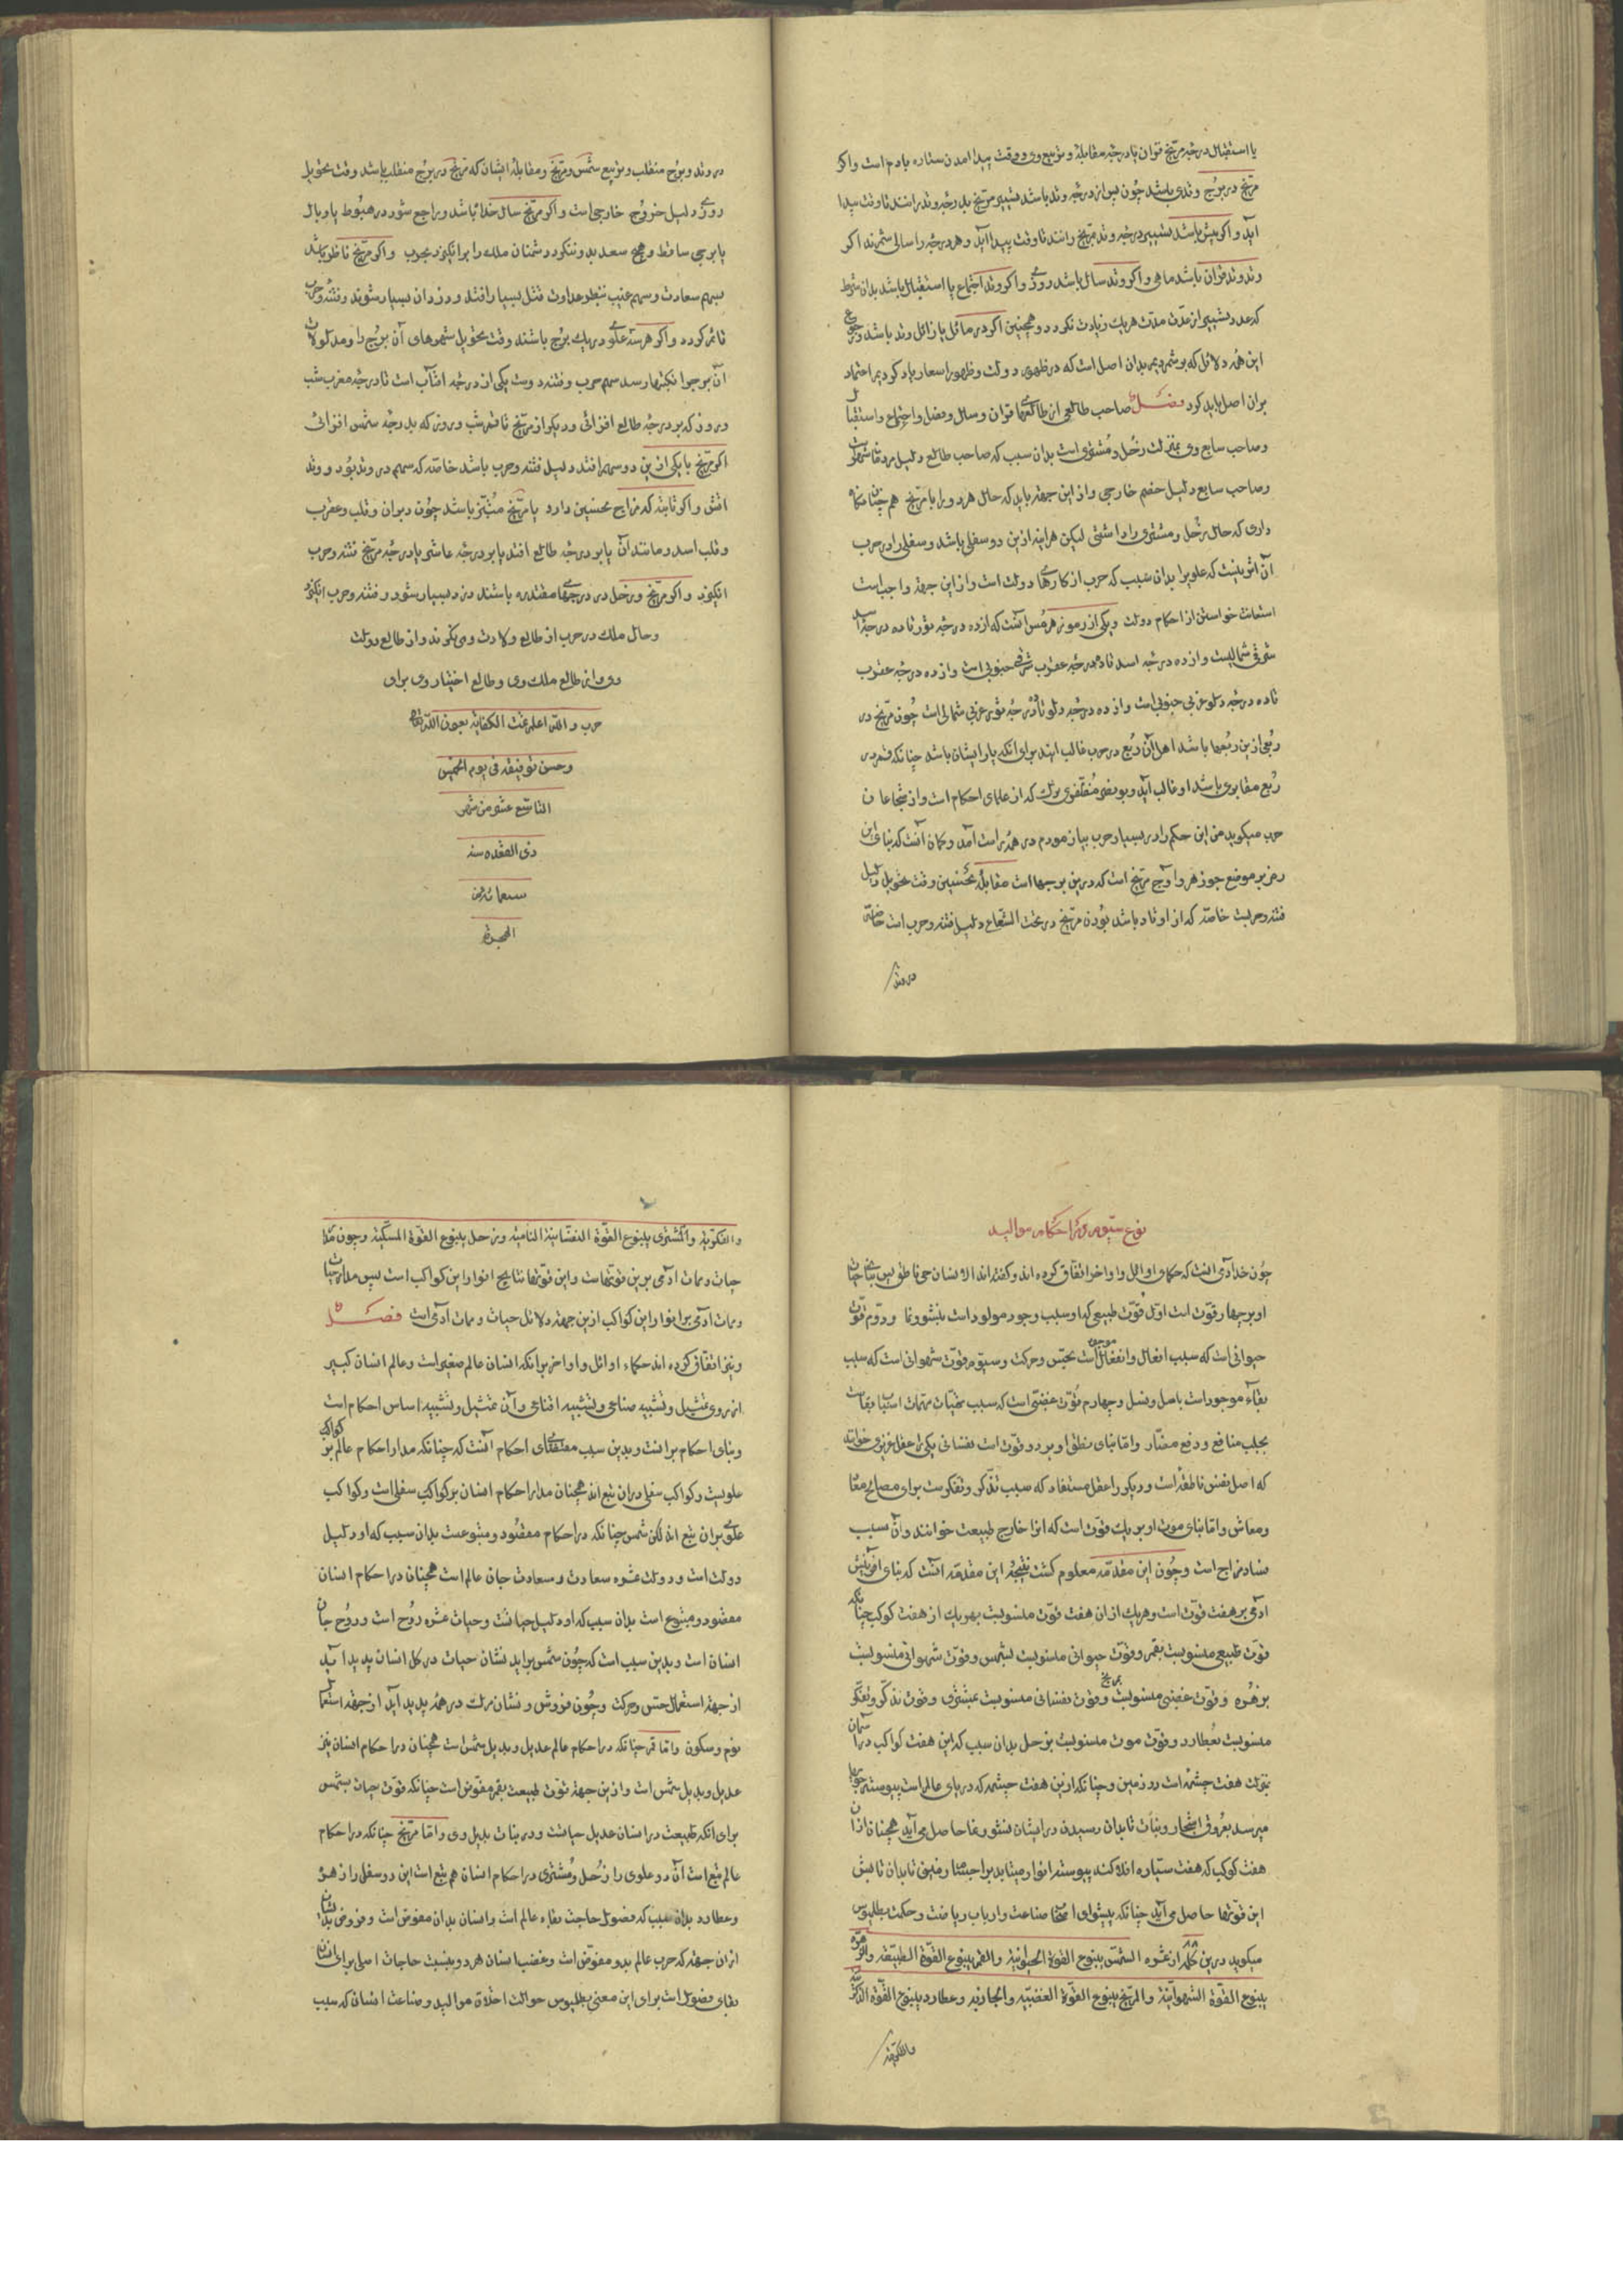 یا استقبال درجه مریخ قران یا درجه مقابله و تربیع وی و وقت پیدا آمدن ستاره یا دم است واکر
مریخ در برج وتدی باشد چون پس از درجه وتد باشد تسییر مریخ بدرجه وتد رانند تا وقت پیدا
آید واکر پیش باشد تسییر درجه وتد بمریخ رانند تا وقت پیدا آید و هر درجه را سالی شمرند اکر
وتد وتد قران باشد ماهی واکر وتد سال باشد روزی واکر وتد اجتماع یا استقبال باشد بدان شرط
که عدد تسییر از مدّت هر یک زیادت نکردد و همچنین اکر در مائل یا زائل وتد باشد
این همه دلائل که برشمردیم بدان اصل است که در ظهور دولت و ظهور اسعار یاد کردیم اعتماد
بران اصل باید کرد فصل صاحب طالعی از طالعهای قران و سال و فصل و اجتماع و استقبال
و صاحب سابع وی بمنزلت زحل و مشتری است بدان سبب که صاحب طالع دلیل
و صاحب سابع دلیل خصم خارجی و از این جهت باید که حال هر دو را با مریخ هم چنان نکاه
داری که حال زحل و مشتری را داشتی لیکن هر اینه ازین دو سفلی باشد و سفلی را در حرب
آن اثر نیست که علوی را بدان سبب که حرب از کارهای دولت است و از این جهت واجب است
استعانت خواستن از احکام دولت و یکی از رموز هرمس آنست که از ده درجه ثور تا ده درجه اسد
شرقی شمالیست و از ده درجه اسد تا ده درجه عقرب شرقی جنوبی است و از ده درجه عقرب
تا ده درجه دلو غربی جنوبی است و از ده درجه دلو تا ده درجه ثور غربی شمالی است چون مریخ در
ربعی ازین ربعها باشد اهل آن ربع در حرب غالب ایند برای انکه یار ایشان باشد چنانکه قمر در
ربع مقابر وی باشد او غالب آید و بو نصر که از علمای احکام است و از شجاعان
حرب میکوید من این حکم را در بسیار حرب بیازمودم در همه راست آمد و کمان آنست که بنای این
رمز بر موضع جوزهر و اوج مریخ است که درین برجها است مقابله نحسین وقت تحویل دلیل
فتنه و حربست خاصّه که از اوتاد باشد بودن مریخ در تحت الشعاع دلیل فتنه و حرب است خاصّه
در وتد
در وتد و برج منقلب و تربیع شمس و مریخ و مقابله ایشان که مریخ در برج منقلب باشد وقت تحویل
روزی دلیل خروج خارجی است واکر مریخ سال خدا باشد و راجع شود در هبوط یا وبال
یا برجی ساقط و هیچ سعد بدو ننکرد دشمنان ملک را برانکیزد بحرب واکر مریخ ناظر باشد
بسهم سعادت و سهم غیب بنظر عداوت قتل بسیار افتد و دزدان بسیار شوند و فتنه و حرب
قائم کردد واکر هر سه علوی در یک برج باشند وقت تحویل شهرهای آن برج را و مدلولات
آن برج را نکبتها رسد سهم حرب و فتنه دوست یکی از درجه افتاب است تا درجه مغرب شب
و روز که بر درجه طالع افزائی و دیکر از مریخ تا قمر شب و روز که بدرجه شمس افزائی
اکر مریخ با یکی ازین دو سهم افتد دلیل فتنه و حرب باشد خاصّه که سهم در وتد بود و وتد
افتد واکر ثابته که مزاج نحسین دارد یا مریخ باشد چون دبران و قلب عقرب
و قلب اسد و مانند آن یا بر درجه طالع افتد یا بر درجه عاشر یا درجه مریخ فتنه و حرب
انکیزد واکر مریخ و زحل در درجهها مقتدر باشند دزد بسیار شود و فتنه و حرب انکیزد
و حال ملک در حرب از طالع ولادت وی نکرند و از طالع دولت
وی و از طالع ملک وی و طالع اختیار وی برای
حرب و الله اعلم تمت الکفایه بعون الله تعالی
و حسن توفیقه فی یوم الخمیس
التاسع عشر من شهر
ذی القعده سنه
سبعمائه من
الهجرة
نوع سیّوم در احکام موالید
چون حدّ آدمی آنست که حکمای اوائل و اواخر اتفاق کرده اند و کفته اند الانسان حی ناطق پس بنای حیات
او بر چهار قوّت است اوّل قوّت طبیعی که او سبب وجود مولود است بنشو و نما و دوّم قوّت
حیوانی است که سبب افعال و انفعال موجود است بحسّ و حرکت و سیّوم قوّت شهوانی است که سبب
بقاء موجود است باصل و نسل و چهارم قوّت غضبی است که سبب اسباب بقا است
بجلب منافع و دفع مضار و امّا بنای نطق او بر دو قوّت است نفسانی یکی را عقل غریزی خوانند
که اصل نفس ناطقه است و دیکر را عقل مستفاد که سبب تذکر و تفکرست برای مصالح معاد
و معاش و امّا بنای موت او بر یک قوّت است که انرا خارج طبیعت خوانند و آن سبب
فساد مزاج است و چون این مقدّمه معلوم کشت نتیجه این مقدّمه آنست که بنای آفرینش
آدمی بر هفت قوّت است و هر یک از ان هفت قوّت منسوبست بهر یک از هفت کوکب چنانکه
قوّت طبیعی منسوبست بقمر و قوّت حیوانی منسوبست بشمس و قوّت شهوانی منسوبست
بزهره و قوّت غضبی منسوبست بمریخ و قوّت نفسانی منسوبست بمشتری و قوّت تذکر و تفکر
منسوبست بعطارد و قوّت موت منسوبست بزحل بدان سبب که این هفت کواکب در اسمان
بمنزلت هفت چشمه است در زمین و چنانکه ازین هفت چشمه که دریای عالم است پیوسته
میرسد بعروق اشجار و نبات تا بدان رسیدن در ایشان نشو و نما حاصل می آید همچنان از ان
هفت کوکب که هفت سیّاره افلاکند پیوسته انوار میتابد بر اجسام زمینی تا بدان تابش
این قوّتها حاصل می آید چنانکه پیشوای اصحاب صناعت و ارباب ریاضت و حکمت بطلمیوس
میکوید درین کلمه از ثمره الشمس ینبوع القوّة الحیوانیة و القمر ینبوع القوّة الطبیعة و الزهرة
ینبوع القوّة الشهوانیة و المریخ ینبوع القوّة الغضبیة و عطارد ینبوع القوّة الذکریة
والفکریة
والفکریة و المشتری ینبوع القوّة النفسانیة النامیة و زحل ینبوع القوّة الممسکة و چون مدار
حیات و ممات آدمی برین قوّتهاست و این قوّتها نتایج انوار این کواکب است پس مدار حیات
و ممات آدمی بر انوار این کواکب ازین جهت دلائل حیات و ممات آدمی است فصل
و نیز اتفاق کرده اند حکماء اوائل و اواخر بر انکه انسان عالم صغیر است و عالم انسان کبیر
از روی تمثیل و تشبیه صناعی و تشبیه اقناعی و آن تمثیل و تشبیه اساس احکام است
و بنای احکام برانست و بدین سبب مقتضای احکام آنست که چنانکه مدار احکام عالم بر کواکب
علویست و کواکب سفلی دران تبع اند همچنان مدار احکام انسان بر کواکب سفلی است و کواکب
علوی بران تبع اند لکن شمس چنانکه در احکام مقصود و متبوعست بدان سبب که او دلیل
دولت است و دولت ثمره سعادت و سعادت جان عالم است همچنان در احکام انسان
مقصود و متبوع است بدان سبب که او دلیل حیاتست و حیات ثمره روح است و روح جان
انسان است و بدین سبب است که چون شمس براید نشان حیات در کل انسان پدید آید
از جهت استعمال حسّ و حرکت و چون فرو شود نشان موت در همه پدید آید از جهت استعمال
نوم و سکون و امّا قمر چنانکه در احکام عالم عدیل و بدیل شمس است همچنان در احکام انسان نیز
عدیل و بدیل شمس است و ازین جهت قوّت طبیعت بقمر مفوّض است چنانکه قوّت حیات بشمس
برای انکه طبیعت در انسان عدیل حیاتست و در نبات بدیل وی و امّا مریخ چنانکه در احکام
عالم تبع است آن دو علوی را زحل و مشتری در احکام انسان هم تبع است این دو سفلی را زهره
و عطارد بدان سبب که فضول حاجت بقاء عالم است و انسان بدان مفوّض است
ازان جهت که حرب عالم بدو مفوّض است و غضب انسان هر دو بنسبت حاجات اصلی برای
بقای فضول است برای این معنی بطلمیوس حوالت اخلاق موالید و صناعت انسان که سبب